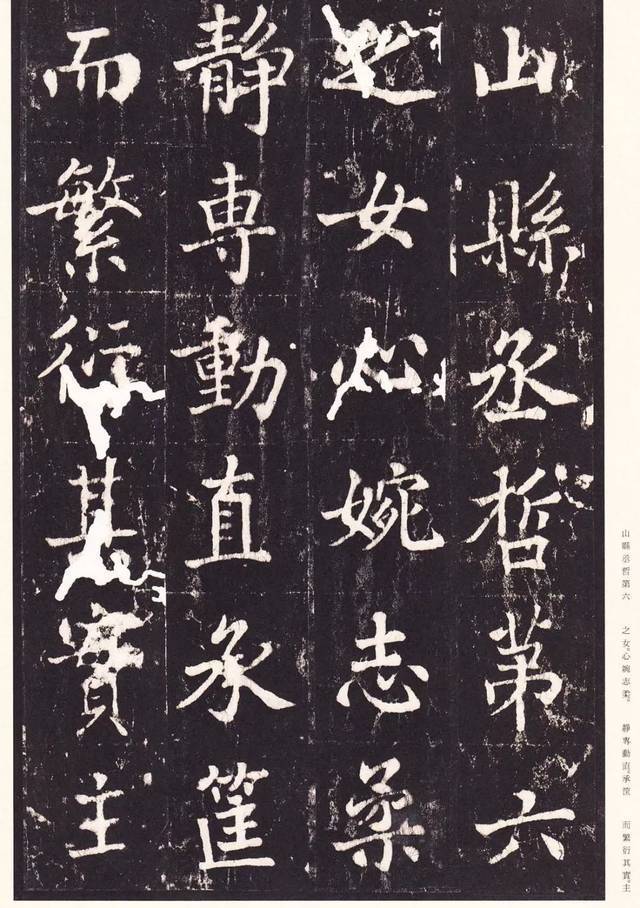 山縣丞哲苐六
之女心婉志柔
靜專動直承筐
而繁衍其實主
山縣丞哲第六　之女。心婉志柔。　靜專動直。承筐　而繁衍其實。主